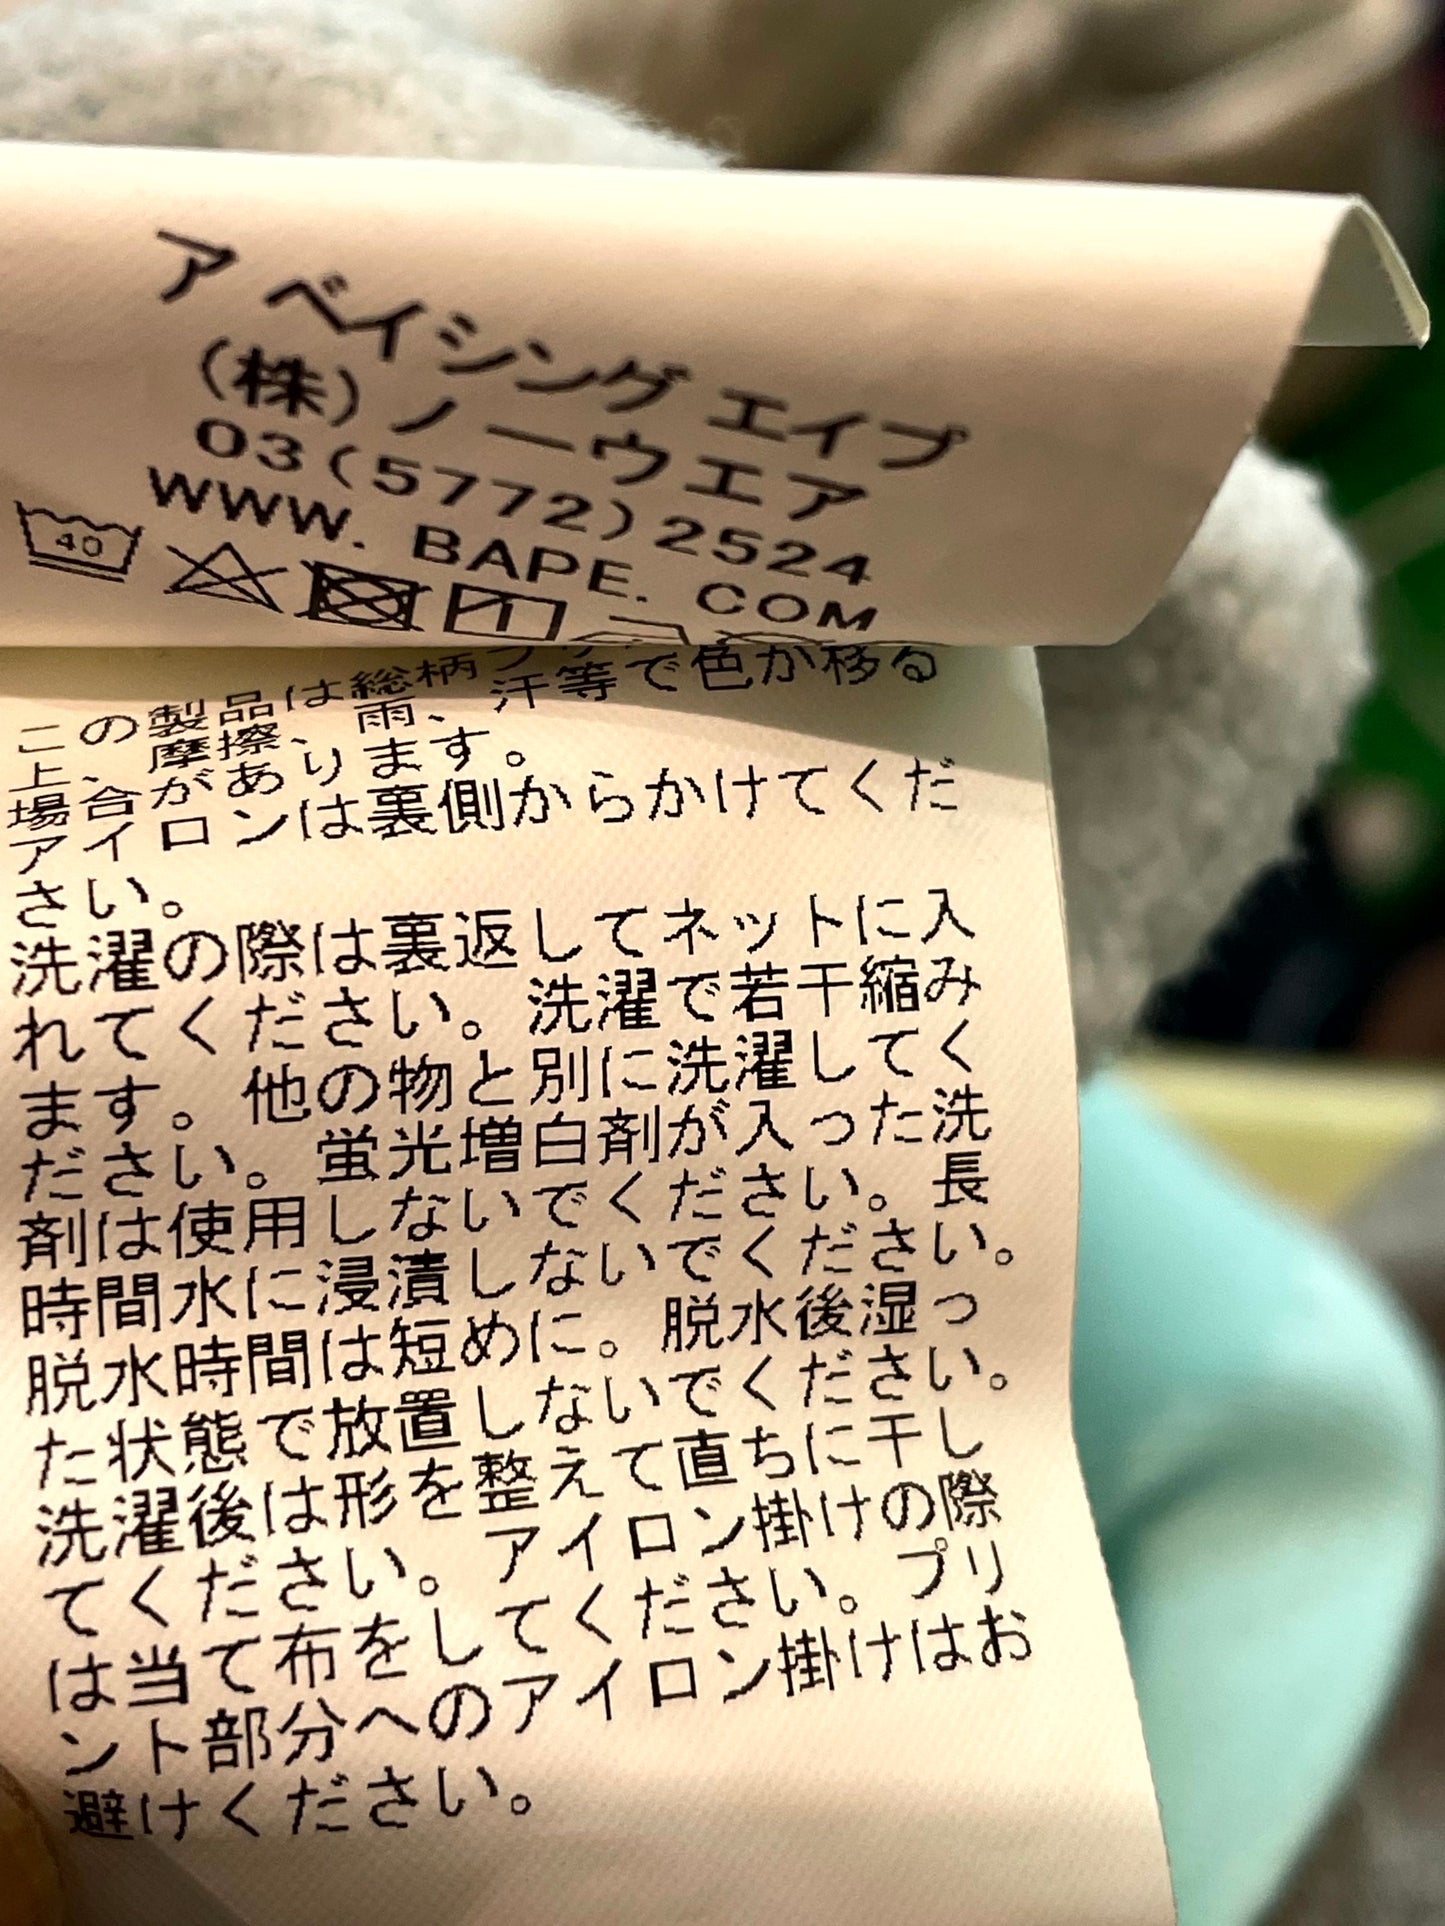 ア ベイシング エイプ
(株)ノーウエア
03(5772)2524
WWW. BAPE. COM
40
この製品は総柄プ
上、摩擦、雨、汗等で色が移る
場合があります。
アイロンは裏側からかけてくだ
さい。
洗濯の際は裏返してネットに入
れてください。洗濯で若干縮み
ます。他の物と別に洗濯してく
ださい。蛍光増白剤が入った洗
剤は使用しないでください。長
時間水に浸漬しないでください。
脱水時間は短めに。脱水後湿っ
た状態で放置しないでください。
洗濯後は形を整えて直ちに干し
てください。アイロン掛けの際
は当て布をしてください。プリ
ント部分へのアイロン掛けはお
避けください。